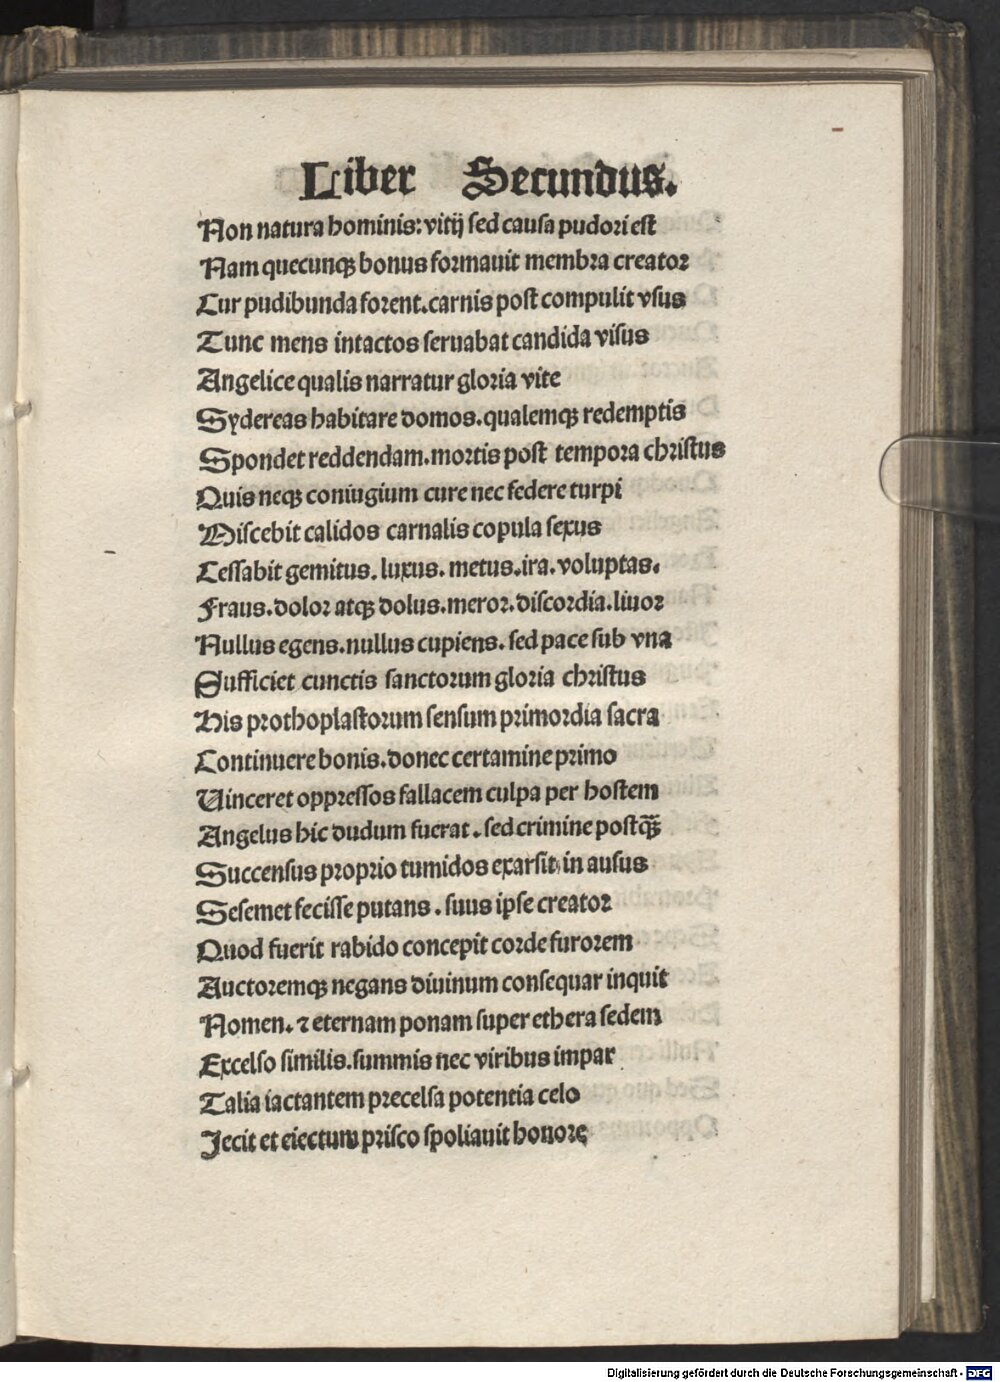 Liber Secundus.
Non natura hominis: vitij sed causa pudori est
Nam quecunqꝫ bonus formauit membra creator
Cur pudibunda forent. carnis post compulit vsus
Tunc mens intactos seruabat candida visus
Angelice qualis narratur gloria vite
Sydereas habitare domos. qualemqꝫ redemptis
Spondet reddendam. mortis post tempora christus
Quis neqꝫ coniugium cure nec federe turpi
Miscebit calidos carnalis copula sexus
Cessabit gemitus. luxus. metus. ira. voluptas.
Fraus. dolor atqꝫ dolus. meror. discordia. liuor
Nullus egens. nullus cupiens. sed pace sub vna
Sufficiet cunctis sanctorum gloria christus
His prothoplastorum sensum primordia sacra
Continuere bonis. donec certamine primo
Uinceret oppressos fallacem culpa per hostem
Angelus hic dudum fuerat. sed crimine postqꝫ̃
Succensus proprio tumidos exarsit in ausus
Sesemet fecisse putans. suus ipse creator
Quod fuerit rabido concepit corde furorem
Auctoremqꝫ negans diuinum consequar inquit
Nomen. ⁊ eternam ponam super ethera sedem
Excelso similis. summis nec viribus impar
Talia iactantem precelsa potentia celo
Jecit et eiectum prisco spoliauit honore
Digitalisierung gefördert durch die Deutsche Forschungsgemeinschaft - DFG